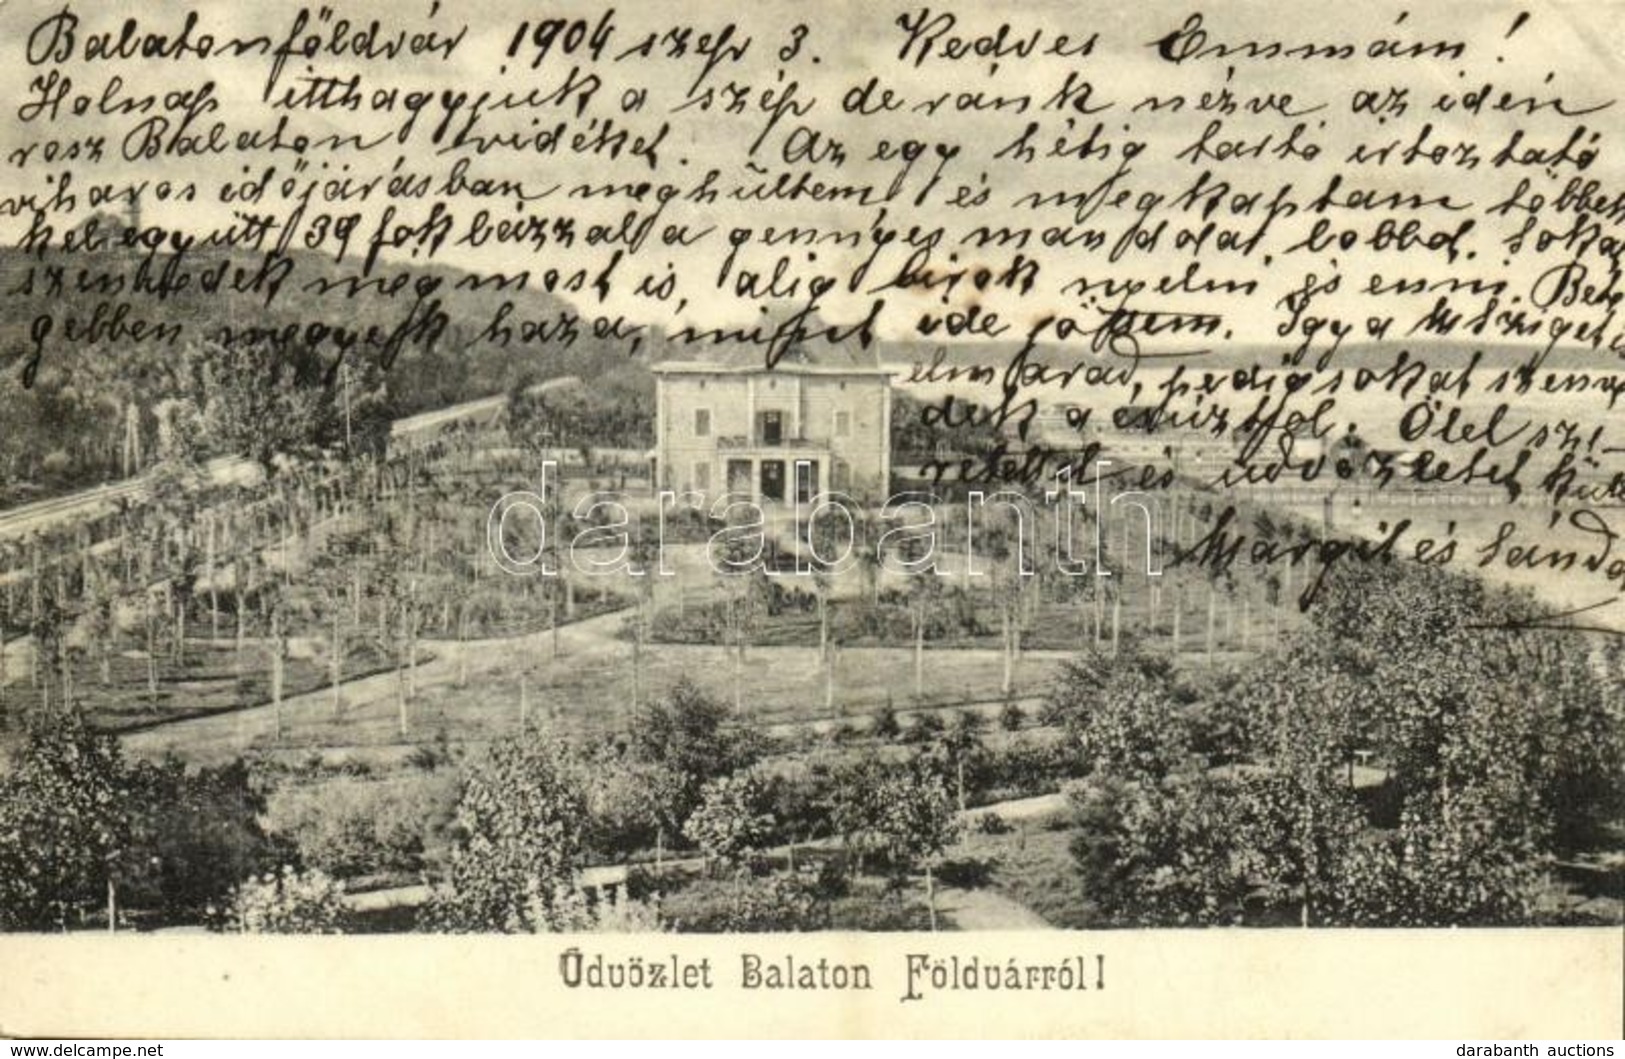 Balatonföldvár 1904 szep 3. Kedves Emmám!
Holnap itthagyjuk a szép de ránk nézve az idén
rosz Balaton vidéket. Az egy hétig tartó irtoztató
viharos időjárásban meghültem és megkaptam többek
kel együtt 39 fok lázzal a gennyes mandola lobbot. Sokat
szenvedek még most is, alig birok nyelni és enni. Bete
gebben megyek haza, mint ide jöttem. Igy a Msziget is
elmarad, pedig sokat szenve
dek a csúztól. Ölel sze-
retettel és üdvözletet küld
Margit és Sándor
darabanth
Üdvözlet Balaton Földvárról!
www.delcampe.net
darabanth auctions